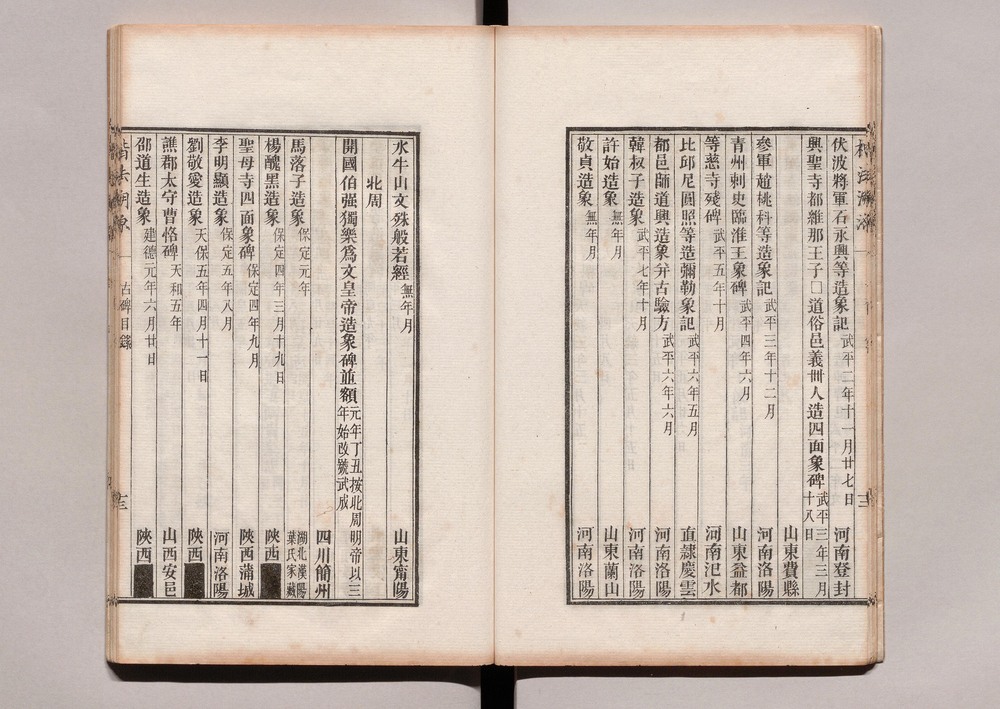 伏波將軍石永興等造象記 武平二年十一月廿七日 河南登封
興聖寺都維那王子□道俗邑義卌人造四面象碑 武平三年三月十八日
山東費縣
參軍趙桃科等造象記 武平三年十二月 河南洛陽
青州刺史臨淮王象碑 武平四年六月 山東益都
等慈寺殘碑 武平五年十月 河南汜水
比邱尼圓照等造彌勒象記 武平六年五月 直隸慶雲
都邑師道興造象并古驗方 武平六年六月 河南洛陽
韓叔子造象 武平七年十月 河南洛陽
許始造象 無年月 山東蘭山
敬貞造象 無年月 河南洛陽
水牛山文殊般若經 無年月 山東甯陽
北周
開國伯強獨樂爲文皇帝造象碑並額 元年丁丑按北周明帝以三年始改號武成
四川簡州
馬落子造象 保定元年 湖北漢陽葉氏家藏
楊醜黑造象 保定四年三月十九日 陝西
聖母寺四面象碑 保定四年九月 陝西蒲城
李明顯造象 保定五年八月 河南洛陽
劉敬愛造象 天保五年四月十一日 陝西
譙郡太守曹恪碑 天和五年 山西安邑
邵道生造象 建德元年六月廿日 陝西
古碑目錄